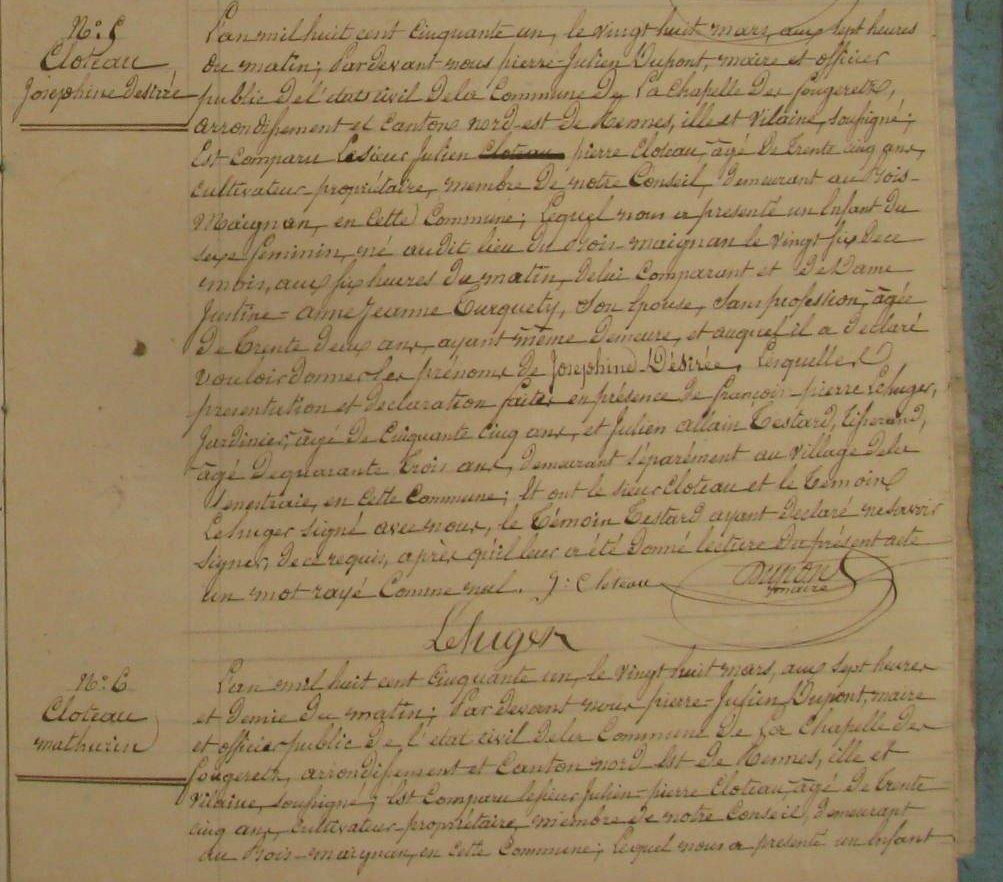 N.° 5
Cloteau
Josephine Desirée
L'an mil huit cent cinquante un, le vingt huit mars, aux sept heures
du matin; Par devant nous pierre-Julien Dupont, maire et officier
public de l'etat civil dela Commune De La Chapelle Des fougeretz,
arrondissement et Canton nord-est De Rennes, ille et Vilaine, soussigné;
Est Comparu Le sieur Julien Cloteau pierre Cloteau, âgé De trente cinq ans,
cultivateur-propriétaire, membre De notre Conseil, Demeurant au Bois-
Maignan, en Cette Commune; Lequel nous a présenté un Enfant Du
sexe feminin, né audit lieu du Bois-maignan le vingt six De ce
mois, aux six heures du matin, Delui Comparant et De Dame
Justine-anne Jeanne Turquety, Son Epouse, Sans profession, âgée
De trente Deux ans, ayant même Demeure, et auquel il a Declaré
vouloir donner les prénoms de Josephine Désirée. Lesquelles
presentation et declaration faites en présence De françois-pierre Lehuger,
Jardinier, âgé De Cinquante cinq ans, et Julien allain Testard, tisserand,
âgé De quarante trois ans, Demeurant séparément au village Dela
, en cette Commune; Et ont le sieur Cloteau et le Témoin
Lehuger signé avec nous, le Témoin Testard ayant Declaré ne savoir
signer, de ce requis, après qu'il leur a été Donné lecture Du présent acte
un mot rayé Comme nul. J: Cloteau
Dupont
maire
Lehuger
N.° 6
Cloteau
mathurin
L'an mil huit cent Cinquante un, le vingt huit mars, aux sept heures
et Demie Du matin; Par devant nous pierre-Julien Dupont, maire
et officier public De l'etat civil Dela Commune De La Chapelle des
fougeretz, arrondissement et Canton nord Est De Rennes, ille et
Vilaine, soussigné; Est Comparu le sieur Julien-pierre Cloteau, âgé De trente
cinq ans, Cultivateur-propriétaire, membre De notre Conseil, Demeurant
au Bois-maignan, en cette Commune; Lequel nous a présenté un Enfant